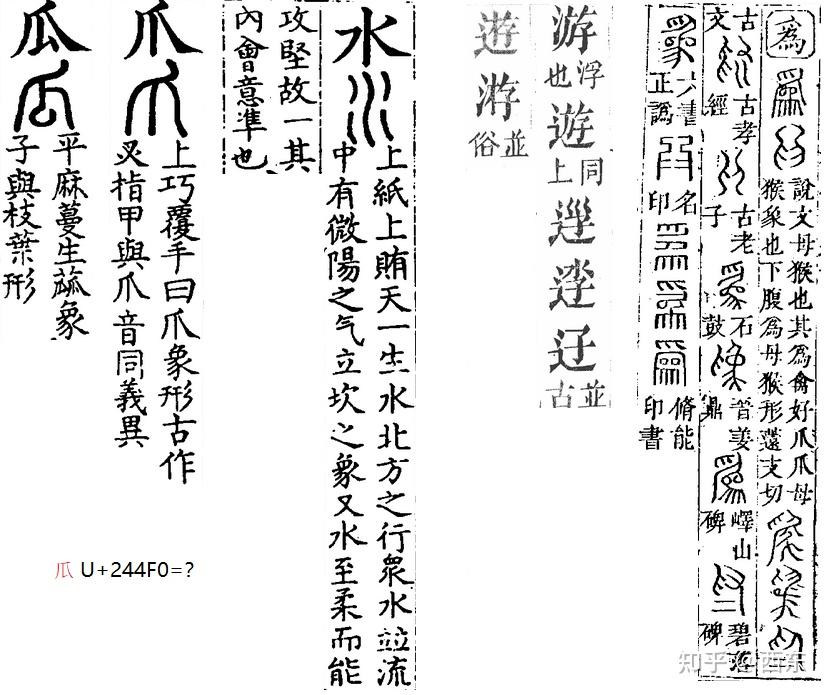 爲
說文母猴也其爲禽好爪爪母
猴象也下腹爲母猴形薳支切
古
文
古孝
經
古老
子
石
鼓
晉姜
鼎
嶧山
碑
碧落
碑
六書
正譌
名
印
脩能
印書
游
浮
也
遊
同
上
並
古
遊
游
並
俗
水
上紙上賄天一生水北方之行衆水竝流
中有微陽之气立坎之象又水至柔而能
攻堅故一其
內會意準也
爪
上巧覆手曰爪象形古作
叉指甲與爪音同義異
瓜
平麻蔓生蓏象
子與枝葉形
瓜 U+244F0=?
知乎 @西东